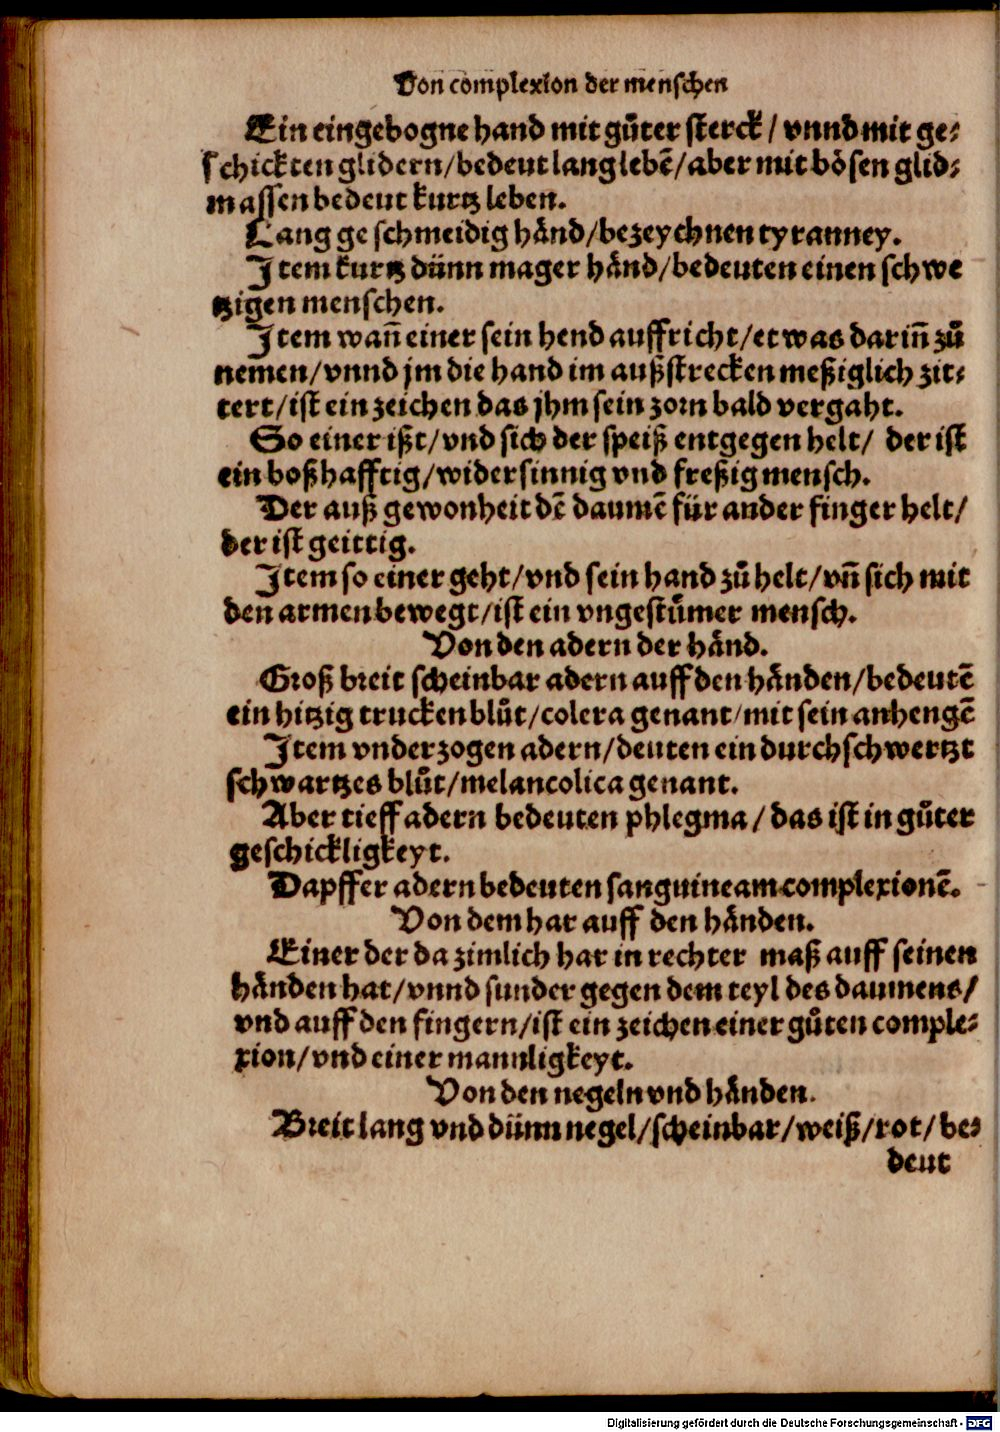 Von complexion der menschen
Ein eingebogne hand mit gůter sterck / vnnd mit ge⸗
schickten glidern/bedeut lang lebẽ/aber mit bösen glid⸗
massen bedeut kurtz leben.
Lang geschmeidig händ/bezeychnen tyranney.
Item kurtz dünn mager händ/bedeuten einen schwe
tzigen menschen.
Item wañ einer sein hend auffricht/etwas dariñ zů
nemen/vnnd jm die hand im außstrecken meßiglich zit⸗
tert/ist ein zeichen das jhm sein zorn bald vergaht.
So einer ißt/vnd sich der speiß entgegen helt/ der ist
ein boßhafftig/widersinnig vnd freßig mensch.
Der auß gewonheit dẽ daumẽ für ander finger helt/
der ist geittig.
Item so einer geht/vnd sein hand zů helt/vñ sich mit
den armen bewegt/ist ein vngestůmer mensch.
Von den adern der händ.
Groß breit scheinbar adern auff den händen/bedeutẽ
ein hitzig trucken blůt/colera genant/mit sein anhengẽ
Item vnderzogen adern/deuten ein durchschwertzt
schwartzes blůt/melancolica genant.
Aber tieff adern bedeuten phlegma / das ist in gůter
geschickligkeyt.
Dapffer adern bedeuten sanguineam complexionẽ.
Von dem har auff den händen.
Einer der da zimlich har in rechter maß auff seinen
händen hat/vnnd sunder gegen dem teyl des daumens/
vnd auff den fingern/ist ein zeichen einer gůten comple⸗
xion/vnd einer mannligkeyt.
Von den negeln vnd händen.
Breit lang vnd dünn negel/scheinbar/weiß/rot/be⸗
deut
Digitalisierung gefördert durch die Deutsche Forschungsgemeinschaft - DFG